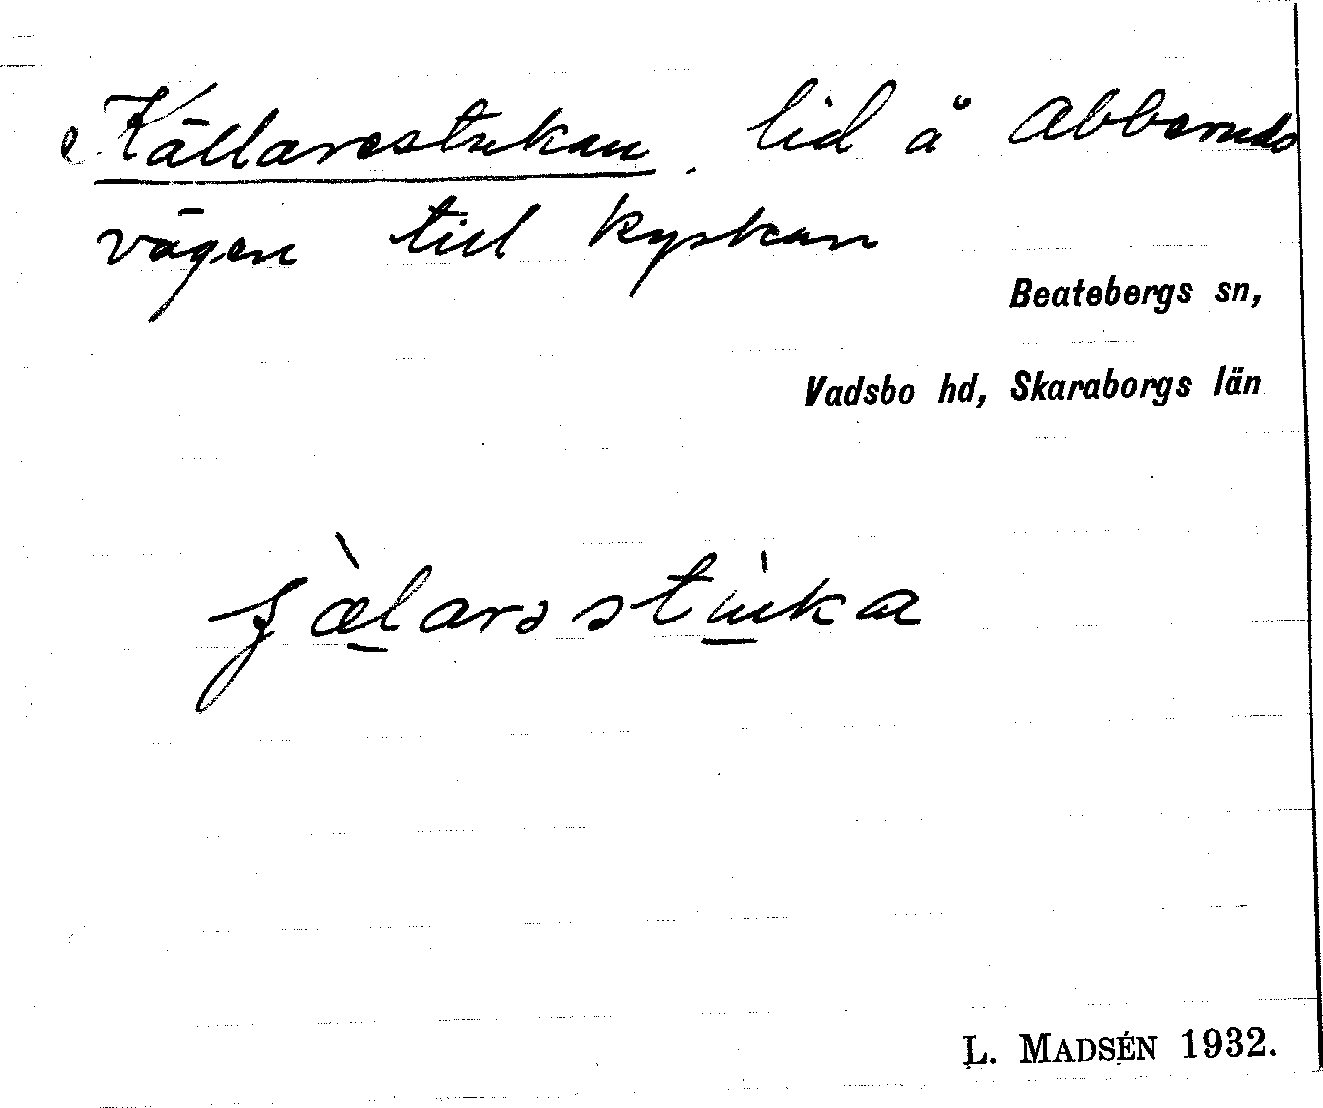 Källarestukan. lid å Abberuds
vägen till kyrkan
Beatebergs sn,
Vadsbo hd, Skaraborgs län
L. MADSÉN 1932.